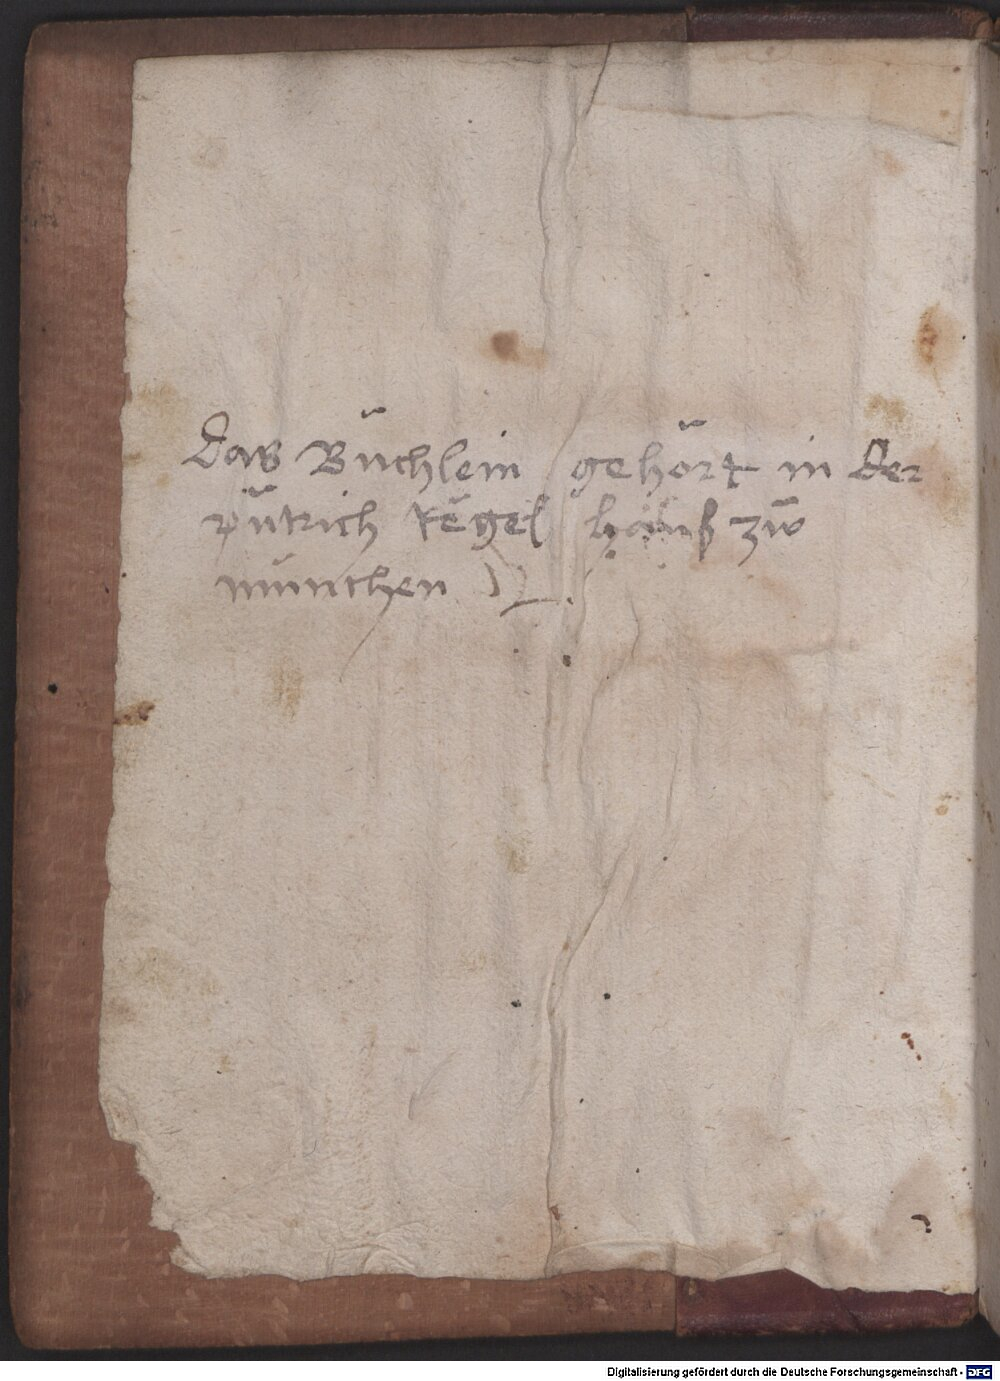 Das Büchlein gehört in der
pütrich regel hauß zw
münchen
Digitalisierung gefördert durch die Deutsche Forschungsgemeinschaft - DFG